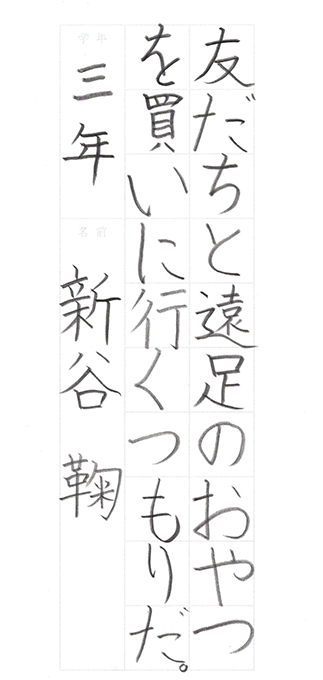 友だちと遠足のおやつ
を買いに行くつもりだ。
学年
三年
名前
新谷 鞠